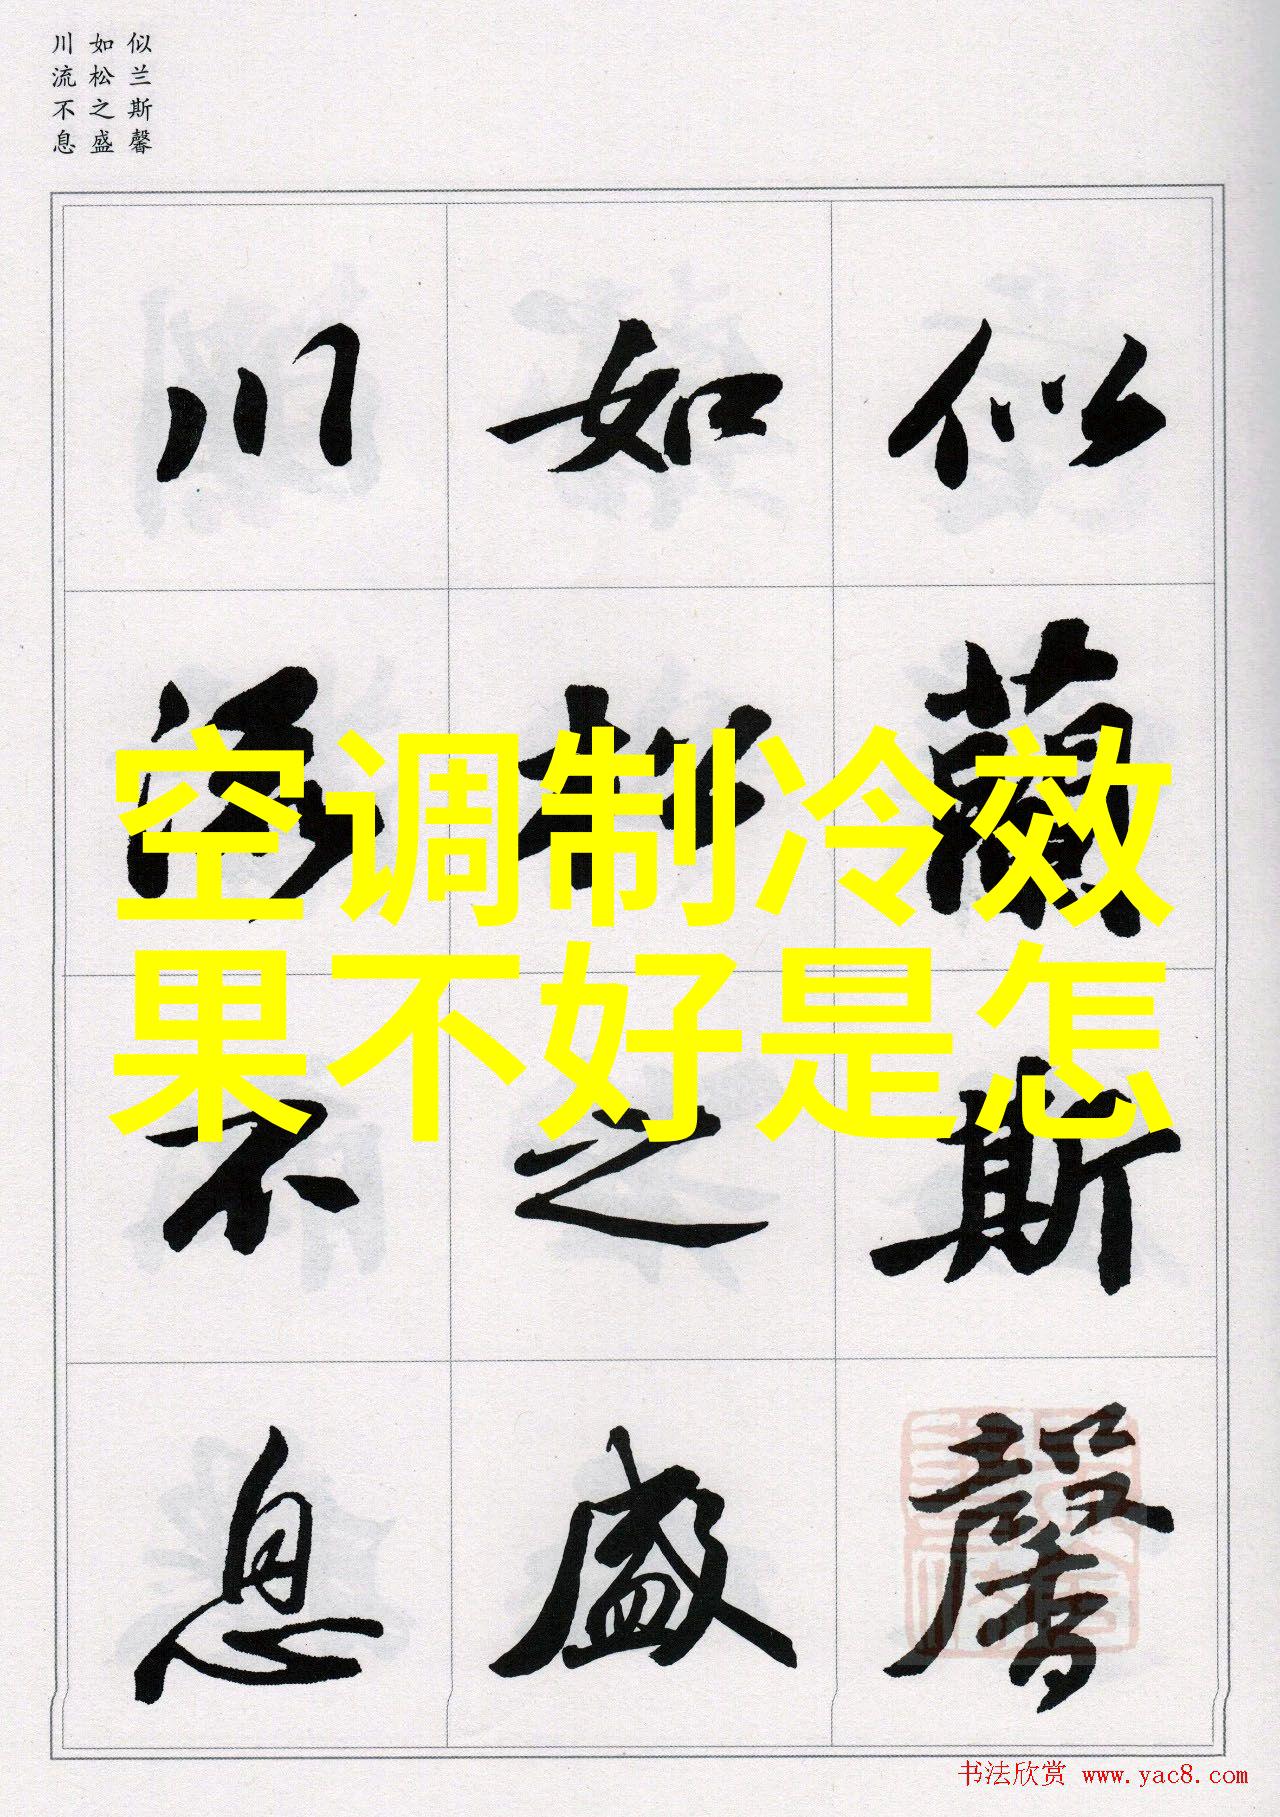 似兰斯馨
如松之盛
川流不息
似蘭斯馨
如松之盛
川流不息
空调制冷效
果不好是怎
书法欣赏 www.yac8.com